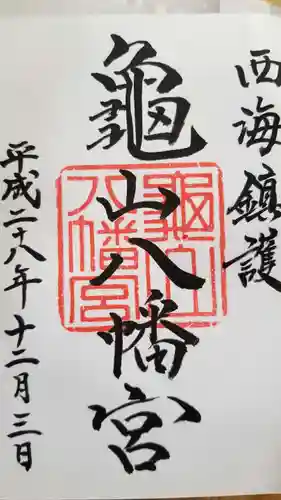 西海鎮護
龜山八幡宮
平成二十八年十二月三日
龜山
八幡宮